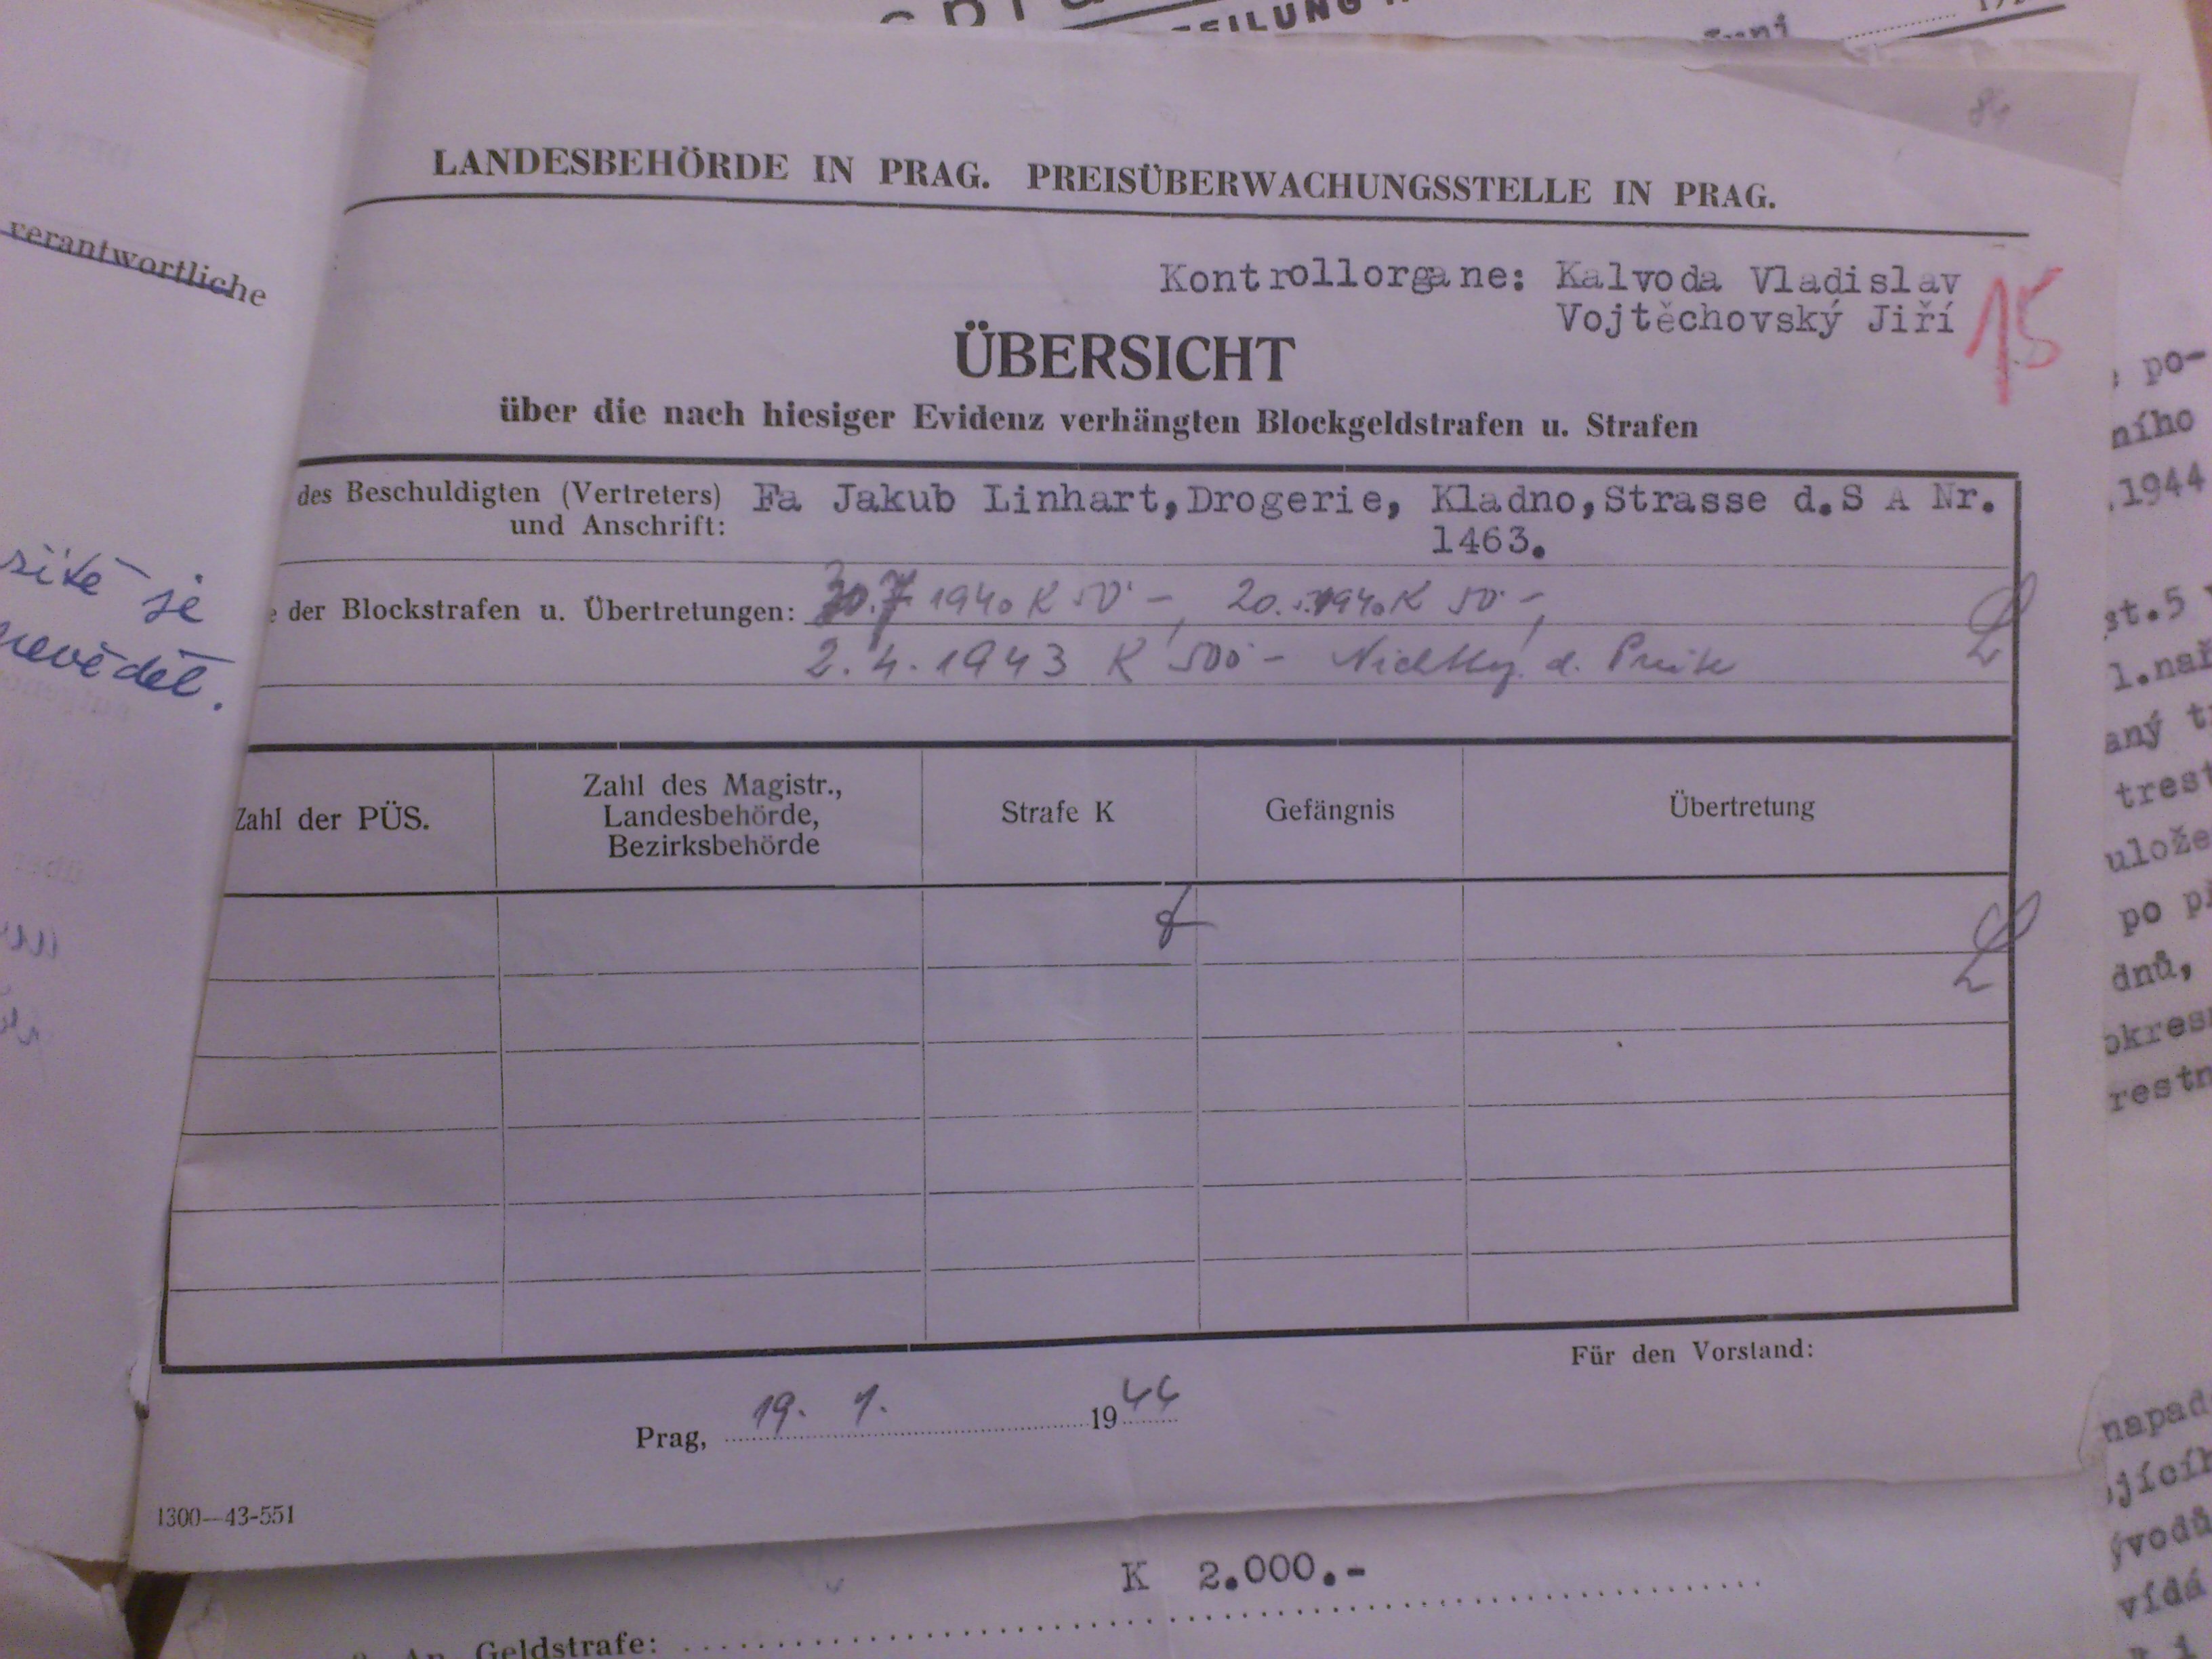 EILUNG
Juni
84
LANDESBEHÖRDE IN PRAG. PREISÜBERWACHUNGSSTELLE IN PRAG.
verantwortliche
Kontrollorgane: Kalvoda Vladislav
Vojtěchovský Jiří
15
ÜBERSICHT
über die nach hiesiger Evidenz verhängten Blockgeldstrafen u. Strafen
des Beschuldigten (Vertreters) Fa Jakub Linhart, Drogerie, Kladno, Strasse d. S A Nr.
und Anschrift: 1463.
der Blockstrafen u. Übertretungen: 30.7 1940 K 50·–, 20. 1940 K 50·–,
2.4.1943 K 500·– d. Preise
sité je
nevěděl.
Zahl der PÜS.
Zahl des Magistr.,
Landesbehörde,
Bezirksbehörde
Strafe K
Gefängnis
Übertretung
Für den Vorstand:
Prag, 19. 1. 1944
1300—43-551
K 2.000.-
Geldstrafe:
po-
ního
.1944
st.5
l.nař
aný t
trest
ulože
po př
dnů,
okres
restn
napad
jících
ývodů
vídá